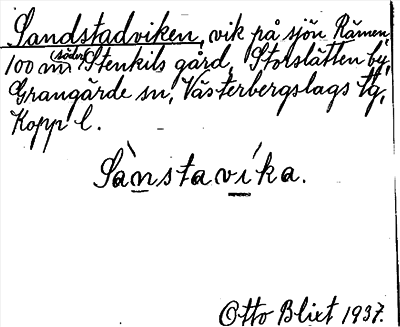 Sandstadviken, vik på sjön Rämen,
100 m (söder) Stenkils gård, Storslätten by,
Grangärde sn, Västerbergslags tg,
Kopp l.
Sànstavíka.
Otto Blixt 1937.